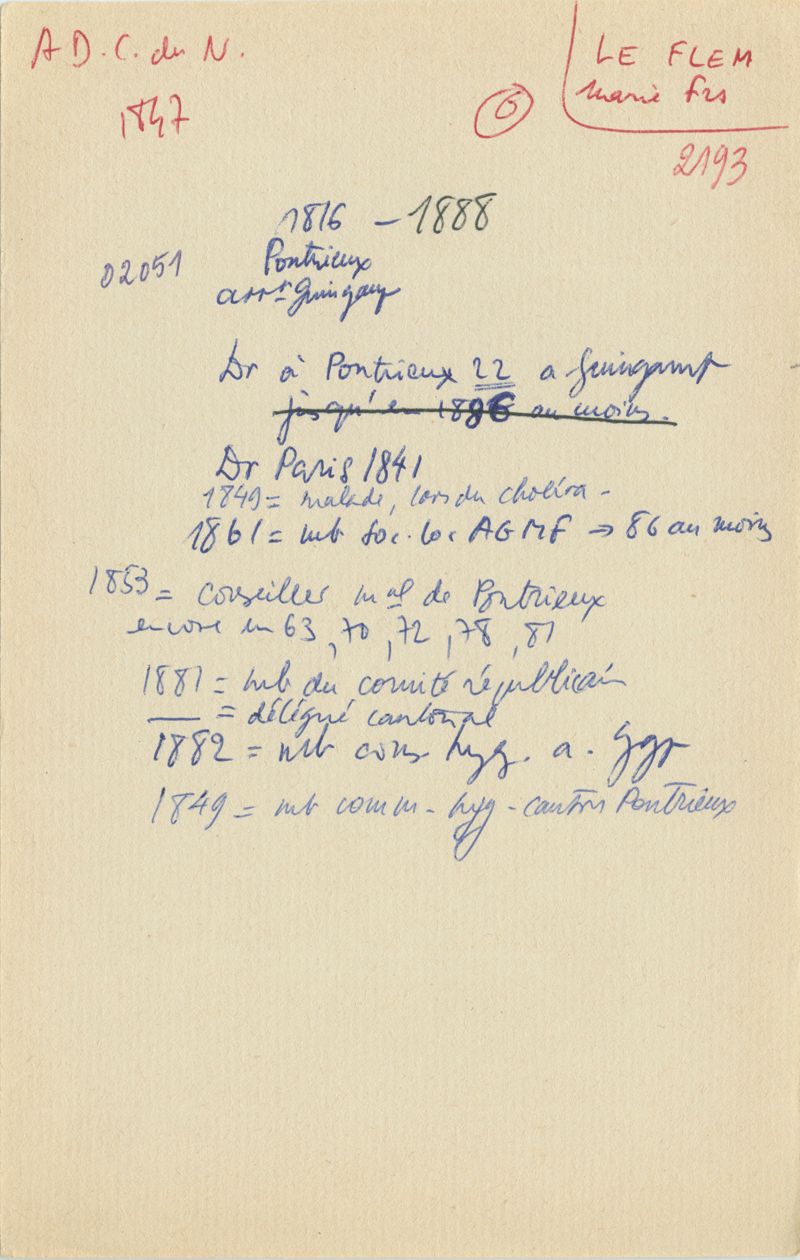 A D. C. du N.
1847
6
LE FLEM
Marie Frs
2193
1816 – 1888
02051
Pontrieux
arrt Guingamp
Dr à Pontrieux 22 a Guingamp
jusqu'en 1886 au moins.
Dr Paris 1841
1849 = malade, lors du choléra -
1861 = mb soc. loc AGMF → 86 au moins
1853 = conseiller mal de Pontrieux
encore en 63, 70, 72, 78, 81
1881 = mb du comité républicain
— = délégué cantonal
1882 = mb cons hyg. a. Ggp
1849 = mb comm - hyg - canton Pontrieux